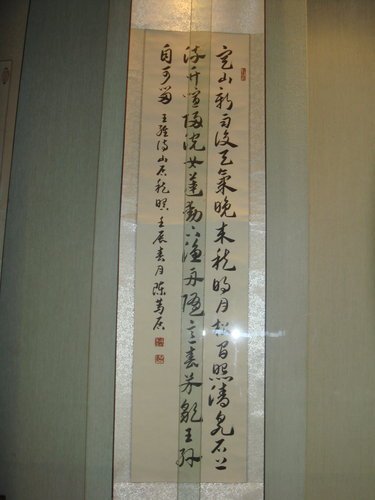 空山新雨後天氣晚來秋明月松間照清泉石上
流竹喧歸浣女蓮動下漁舟隨意春芳歇王孫
自可留 王維詩山居秋暝 壬辰春月 陳